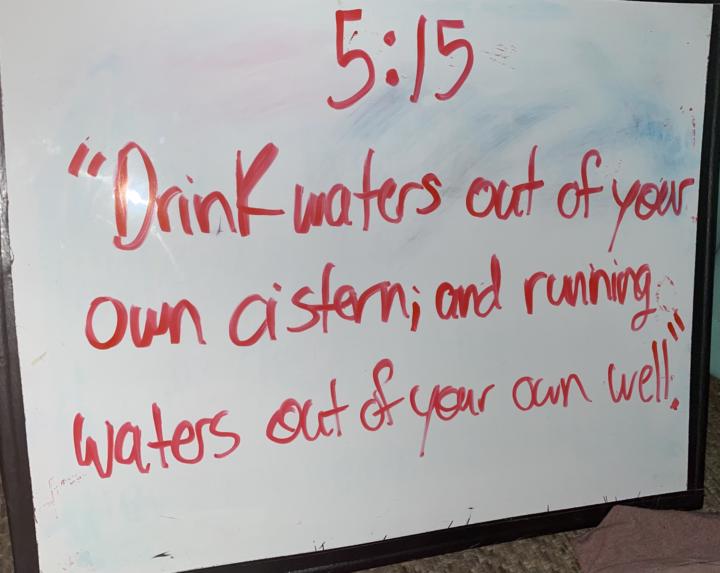 5:15
"Drink waters out of your
own cistern; and running
waters out of your own well."